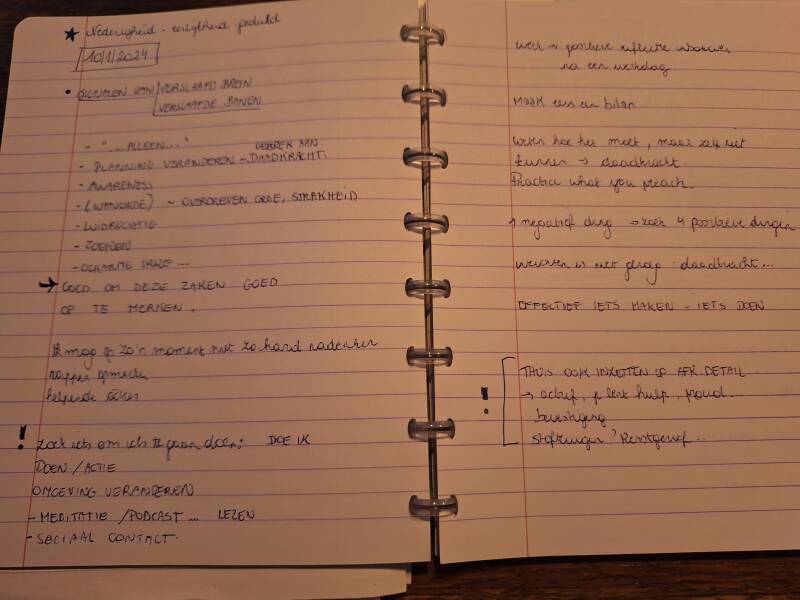 Nederigheid - eerlijkheid - geduld
10/1/2024
• SIGNALEN VAN VERSLAAFD BREIN
VERSLAAFDE BANEN
- "...ALLEEN..." GEBREK AAN
- PLANNING VERANDEREN - DAADKRACHT.
- AWARENESS
- (WANORDE) ~ OVERDREVEN ORDE, STRAKHEID
- LUIDRUCHTIG
- ZOEKEN
- OCHARME IKJE ...
→ GOED OM DEZE ZAKEN GOED
OP TE MERKEN.
Ik mag op zo'n moment niet zo hard nadenken
helpende
! Zoek iets om iets te gaan doen: DOE IK
DOEN / ACTIE
OMGEVING VERANDEREN
- MEDITATIE / PODCAST ... LEZEN
- SOCIAAL CONTACT.
werk → positieve
na een werkdag
MAAK eens een bilan
weten hoe het moet, maar zelf niet
kunnen → daadkracht
Practice what you preach.
1 negatief ding → zoek 4 positieve dingen
is niet genoeg: daadkracht...
EFFECTIEF IETS MAKEN - IETS DOEN
! THUIS OOK INZETTEN OP DETAIL
→ actief, je bent hulp, proud...
bevestiging
stofzuigen